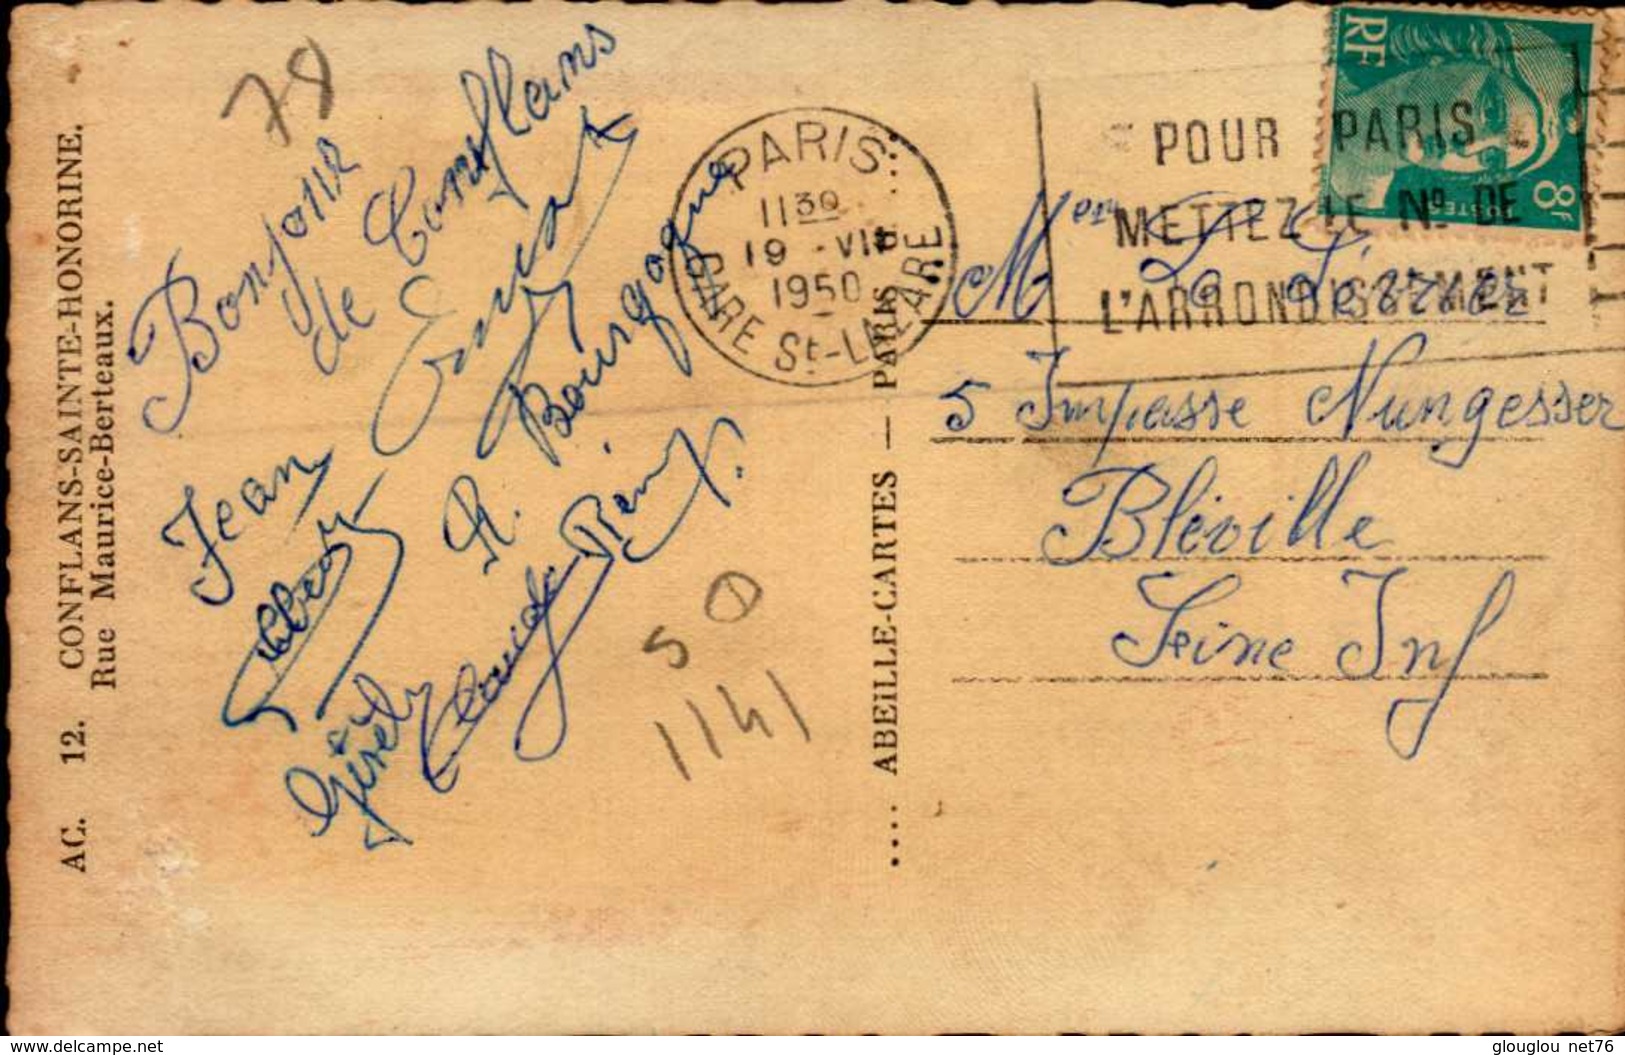 AC. 12. CONFLANS-SAINTE-HONORINE.
Rue Maurice-Berteaux.
78
Bonjour
de Conflans
Jean
R. Bourgogne
Claude Rémy
Gisèle
5
1141
.... ABEILLE-CARTES — PARIS ....
PARIS
11 30
19 -VII
1950
GARE St-LAZARE
POUR PARIS
METTEZ LE No DE
L'ARRONDISSEMENT
RF
8F
POSTES
5 Impasse Nungesser
Bléville
Seine Inf
www.delcampe.net
glouglou net76